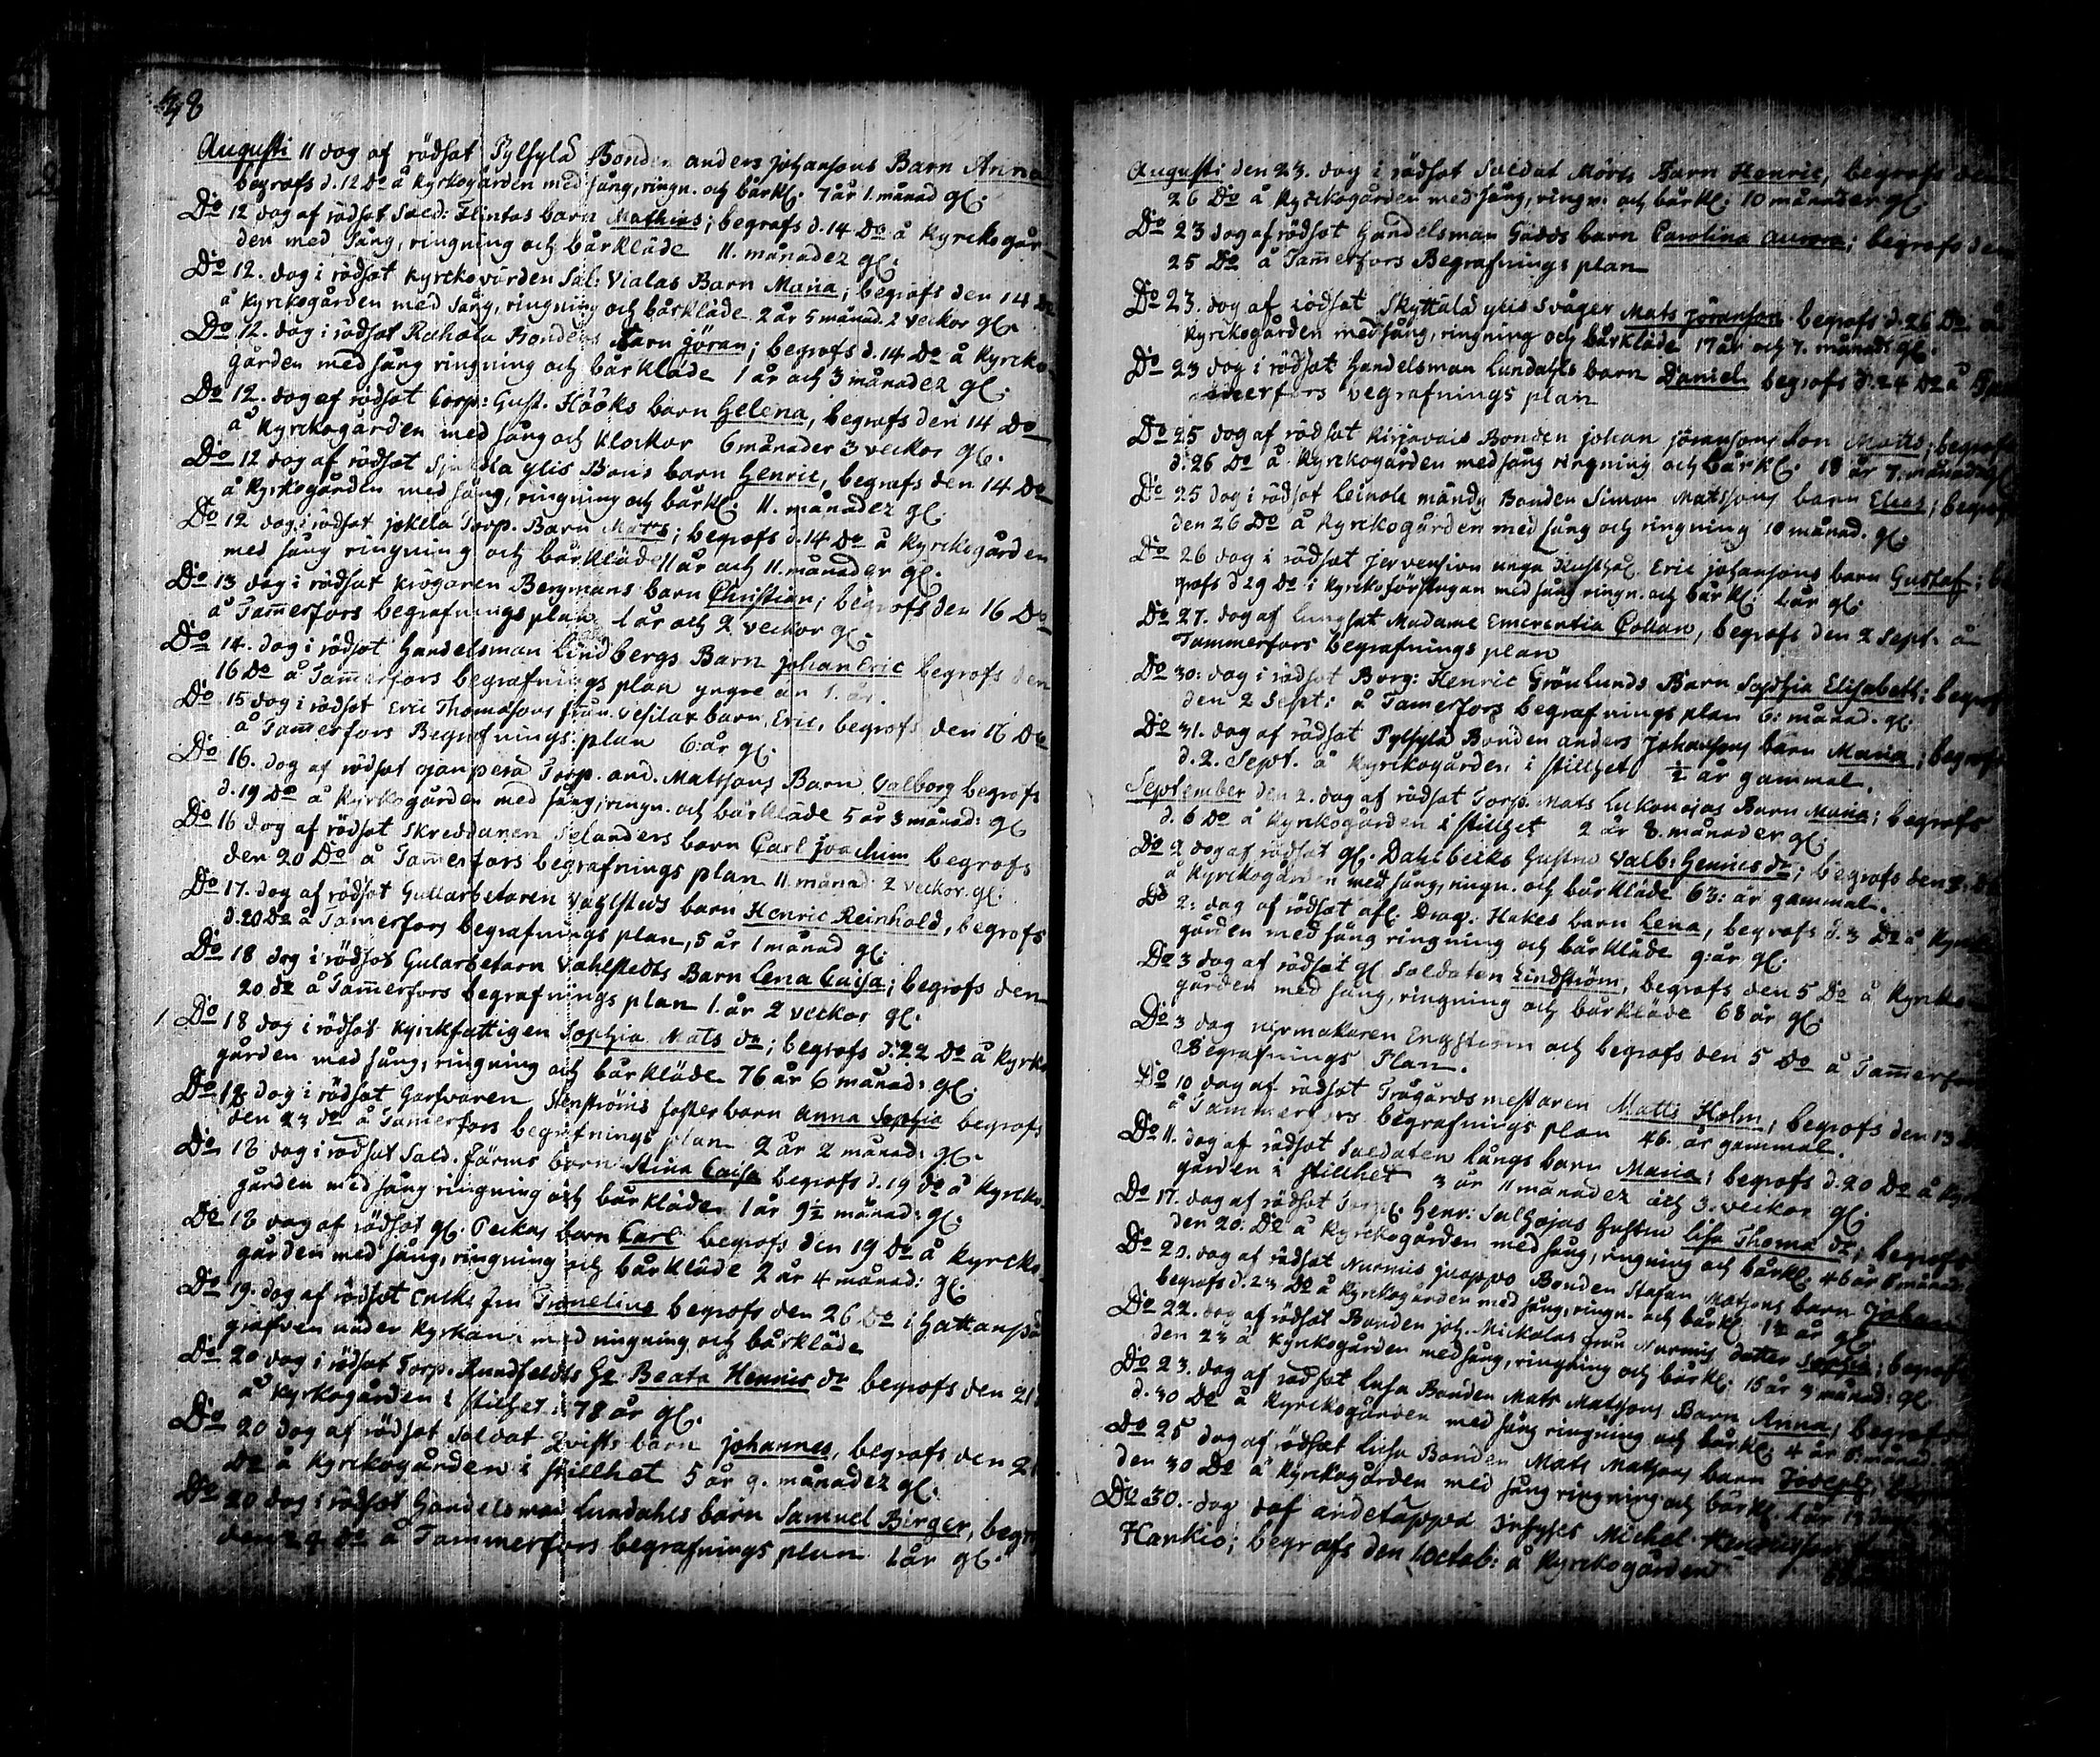 48
Augusti 11 dag af rödsot Pylsylä Bonden anders johansons Barn Anna
begrofs d. 12 Do å kyrkogården med sång, ringn. och bårkl: 7 år 1. månad gl:
Do 12 dag af rödsot Sold: Flintas barn Mathias; begrofs d. 14 Do å Kyrckogår-
den med sång, ringning och bårkläde 11. månader gl:
Do 12. dag i rödsot kyrckovärden Sal: Vialas Barn Maria; begrofs den 14 Do
å kyrckogården med sång, ringning och bårkläde 2 år 5 månad. 2 veckor gl.
Do 12. dag i rödsot Rahola Bondens Barn jöran; begrofs d. 14 Do å kyrcko-
gården med sång ringning och bårkläde 1 år och 3 månader gl:
Do 12. dag af rödsot Corp: Gust. Hööks barn Helena, begrofs den 14 Do
å Kyrckogården med sång och klockor 6 månader 3 veckor gl.
Do 12 dag af rödsot ylis Bons barn Henric, begrofs den 14 Do
å kyrkogården med sång, ringning och bårkl: 11. månader gl:
Do 12 dag i rödsot jokela Torp. Barn Matts; begrofs d. 14 Do å kyrckogården
med sång ringning och bårkläde 11 år och 11. månader gl:
Do 13 dag i rödsot krögaren Bergmans barn Christian; begrofs den 16 Do
å Tam̄erfors begrafningsplan 1 år och 2 veckor gl:
Do 14. dag i rödsot Handelsman Lindbergs Barn johan Eric begrofs den
16 Do å Tam̄erfors begrafnings plan yngre än 1. år.
Do 15 dag i rödsot Eric Thomasons från Vesilax barn Eric, begrofs den 17 Do
å Tam̄erfors Begrafnings plan 6 år gl:
Do 16. dag af rödsot ojanperä Torp. and. Matssons Barn Valborg begrofs
d. 19 Do å Kyrkogården med sång, ringn. och bårkläde 5 år 3 månad: gl
Do 16 dag af rödsot Skreddaren Selanders barn Carl joachim begrofs
den 20 Do å Tam̄erfors begrafnings plan 11. månad 2 veckor. gl:
Do 17. dag af rödsot Gullarbetaren Vahlsteds barn Henric Reinhold, begrofs
d. 20 Do å Tamerfors begrafnings plan, 5 år 1 månad gl:
Do 18 dag i rödsot Gularbetarn Vahlstedts Barn Lena Caisa; begrofs den
20 do å Tam̄erfors begrafnings plan 1. år 2 veckor gl:
Do 18 dag i rödsot kyrkfattigen Sophia Mats dr; begrofs d. 22 Do å kyrko
gården med sång, ringning och bårkläde 76 år 6 månad: gl:
Do 18 dag i rödsot Garfvaren Stenströms fosterbarn Anna Sophia begrofs
den 23 do å Tam̄erfors begrafnings plan 2 år 2 månad: gl:
Do 18 dag i rödsot Sold. Färms barn Stina Caisa begrofs d. 19 do å Kyrcko-
gården med sång ringning och bårkläde 1 år 9½ månad: gl:
Do 18 dag af rödsot gl. Peckas barn Carl begrofs den 19 do å kyrcko-
gården med sång, ringning och bårkläde 2 år 4 månad: gl:
Do 19. dag af rödsot Enke fru Tronelius begrofs den 26 do i Hattanpä
grafven under kyrkan med ringning och bårkläde
Do 20 dag i rödsot Torp. Rundfeldts Ge Beata Henrics dr begrofs den 21
å kyrkogården i stillhet 78 år gl.
Do 20 dag af rödsot Soldat Qvists barn johannes, begrofs den 21
Do å Kyrckogården i stillhet 5 år 9. månader gl.
Do 20 dag i rödsot Handelsman Lundahls barn Samuel Birger, begr
den 24 do å Tammerfors begrafnings plan 1 år gl.
Augusti den 23. dag i rödsot Soldat Mörts Barn Henric, begrofs den
26 Do å Kyrckogården med sång, ringn. och bårkl: 10 månader gl:
Do 23 dag af rödsot Handelsman Gädds barn Carolina Aurora; begrofs den
25 Do å Tam̄erfors Begrafnings plan
Do 23. dag af rödsot Skyttälä ylis Svåger Mats Jöransson begrofs d. 26 Do å
kyrckogården med sång, ringning och bårkläde 17 år och 7. månad: gl.
Do 23 dag i rödsot Handelsman Lundahls barn Daniel begrofs d. 24 Do å
merfors begrafnings plan
Do 25 dag af rödsot Kirjavais Bonden johan jöransons Son Matts; begrofs
d. 26 Do å Kyrckogården med sång ringning och bårkl: 18 år 7. månad gl.
Do 25 dag i rödsot Leinola Bonden Simon Matssons barn Elias; begrofs
den 26 Do å Kyrckogården med sång och ringning 10 månad. gl:
Do 26 dag i rödsot Eric johansons barn Gustaf; be
grofs d 29 Do i Kyrkoförstugan med sång ringn. och bårkl: 1 år gl:
Do 27. dag af lungsot Madame Emerentia Collan, begrofs den 2 Sept. å
Tammerfors begrafnings plan
Do 30: dag i rödsot Borg: Henric Grönlunds Barn Sophia Elisabeth; begrofs
den 2 Sept: å Tamerfors begrafnings plan 6: månad. gl:
Do 31. dag af rödsot Pylsylä Bonden anders Johansons barn Maria; begrofs
d. 2. Sept. å kyrckogården i stillhet ½ år gammal.
September den 2. dag af rödsot Torp. Mats Lukonojas Barn Maria; begrofs
d. 6 Do å kyrckogården i stillhet 2 år 8. månader gl:
Do 2 dag af rödsot gl. Dahlbecks Hustru Valb: Henrics dr; begrofs den
å kyrckogården med sång, ringn. och bårkläde 63: år gammal.
Do 2: dag af rödsot afl: Drag: Hakes barn Lena, begrofs d. 3 Do å Kyrcko
gården med sång ringning och bårkläde 9: år gl:
Do 3 dag af rödsot gl Soldaten Lindström, begrofs den 5 Do å kyrcko-
gården med sång, ringning och bårkläde 68 år gl:
Do 3 dag urmakaren Engström och begrofs den 5 Do å Tam̄erfors
Begrafnings Plan.
Do 10 dag af rödsot Trägårdsmestaren Matts Holm, begrofs den 13 Do
å Tammerfors begrafnings plan 46 år gammal.
Do 11. dag af rödsot Soldaten Långs barn Maria; begrofs d. 20 Do å kyrcko
gården i stillhet 3 år 11 månader och 3. veckor gl:
Do 17. dag af rödsot Henr: Salhojas Hustru Lisa Thoma dr; begrofs
den 20: Do å Kyrckogården med sång, ringning och bårkl: 46 år 8 månad
Do 20. dag af rödsot Nurmis juoppo Bonden Stafan Matsons barn Johan
begrofs d. 23 Do å Kyrckogården med sång, ringn. och bårkl år gl
Do 22. dag af rödsot Bonden joh. Mickolas från Nurmis dotter Sophia; begrofs
den 23 å Kyrkogården med sång, ringning och bårkl: 15 år 3 månad: gl
Do 23. dag af rödsot Lusa Bonden Mats Matsons Barn Anna; begrofs
d. 30 Do å Kyrckogården med sång ringning och bårkl: 4 år 8: månad. gl
Do 25 dag af rödsot Lusa Bonden Mats Matsons barn Joseph,
den 30 Do å Kyrckogården med sång ringning och bårkl. 1 år
Do 30. dag af andetäppa Inhyses Michel Henricsson
Harkio; begrofs den 1 Octob: å Kyrckogården